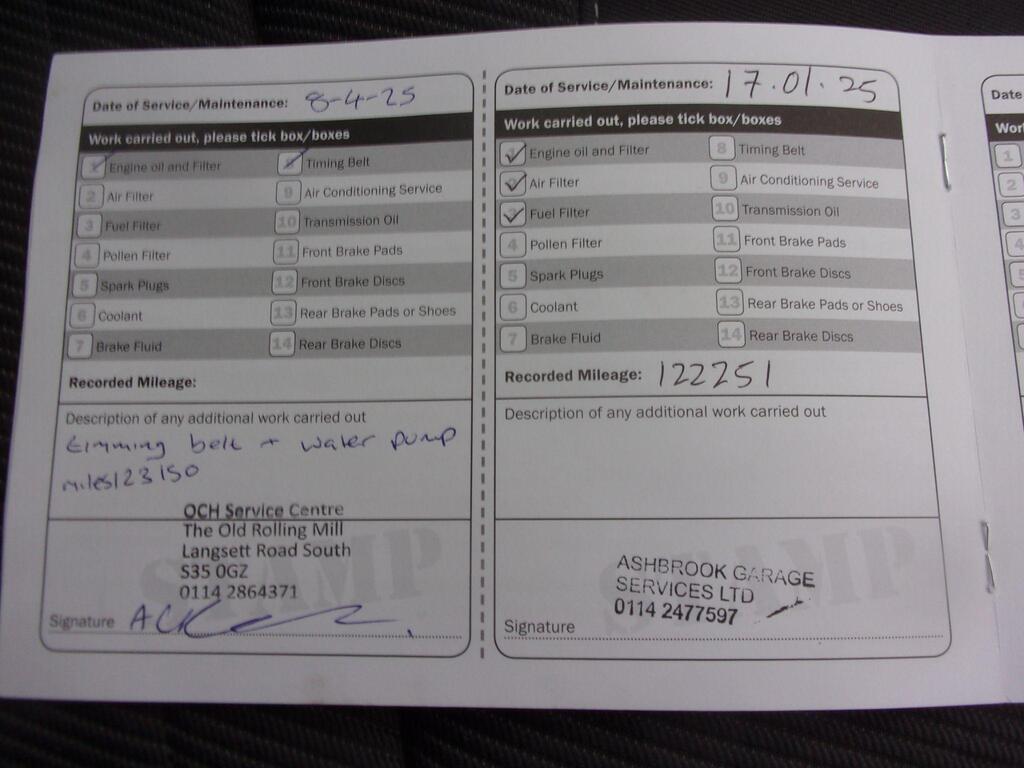 Date of Service/Maintenance: 8-4-25
Work carried out, please tick box/boxes
Engine oil and Filter
Timing Belt
2 Air Filter
9 Air Conditioning Service
3 Fuel Filter
10 Transmission Oil
4 Pollen Filter
11 Front Brake Pads
5 Spark Plugs
12 Front Brake Discs
6 Coolant
13 Rear Brake Pads or Shoes
7 Brake Fluid
14 Rear Brake Discs
Recorded Mileage:
Description of any additional work carried out
timming belt + water pump
miles123150
STAMP
OCH Service Centre
The Old Rolling Mill
Langsett Road South
S35 0GZ
0114 2864371
Signature
Date of Service/Maintenance: 17.01.25
Work carried out, please tick box/boxes
1 Engine oil and Filter
8 Timing Belt
2 Air Filter
9 Air Conditioning Service
3 Fuel Filter
10 Transmission Oil
4 Pollen Filter
11 Front Brake Pads
5 Spark Plugs
12 Front Brake Discs
6 Coolant
13 Rear Brake Pads or Shoes
7 Brake Fluid
14 Rear Brake Discs
Recorded Mileage: 122251
Description of any additional work carried out
STAMP
ASHBROOK GARAGE
SERVICES LTD
0114 2477597
Signature
Date
1
2
3
4